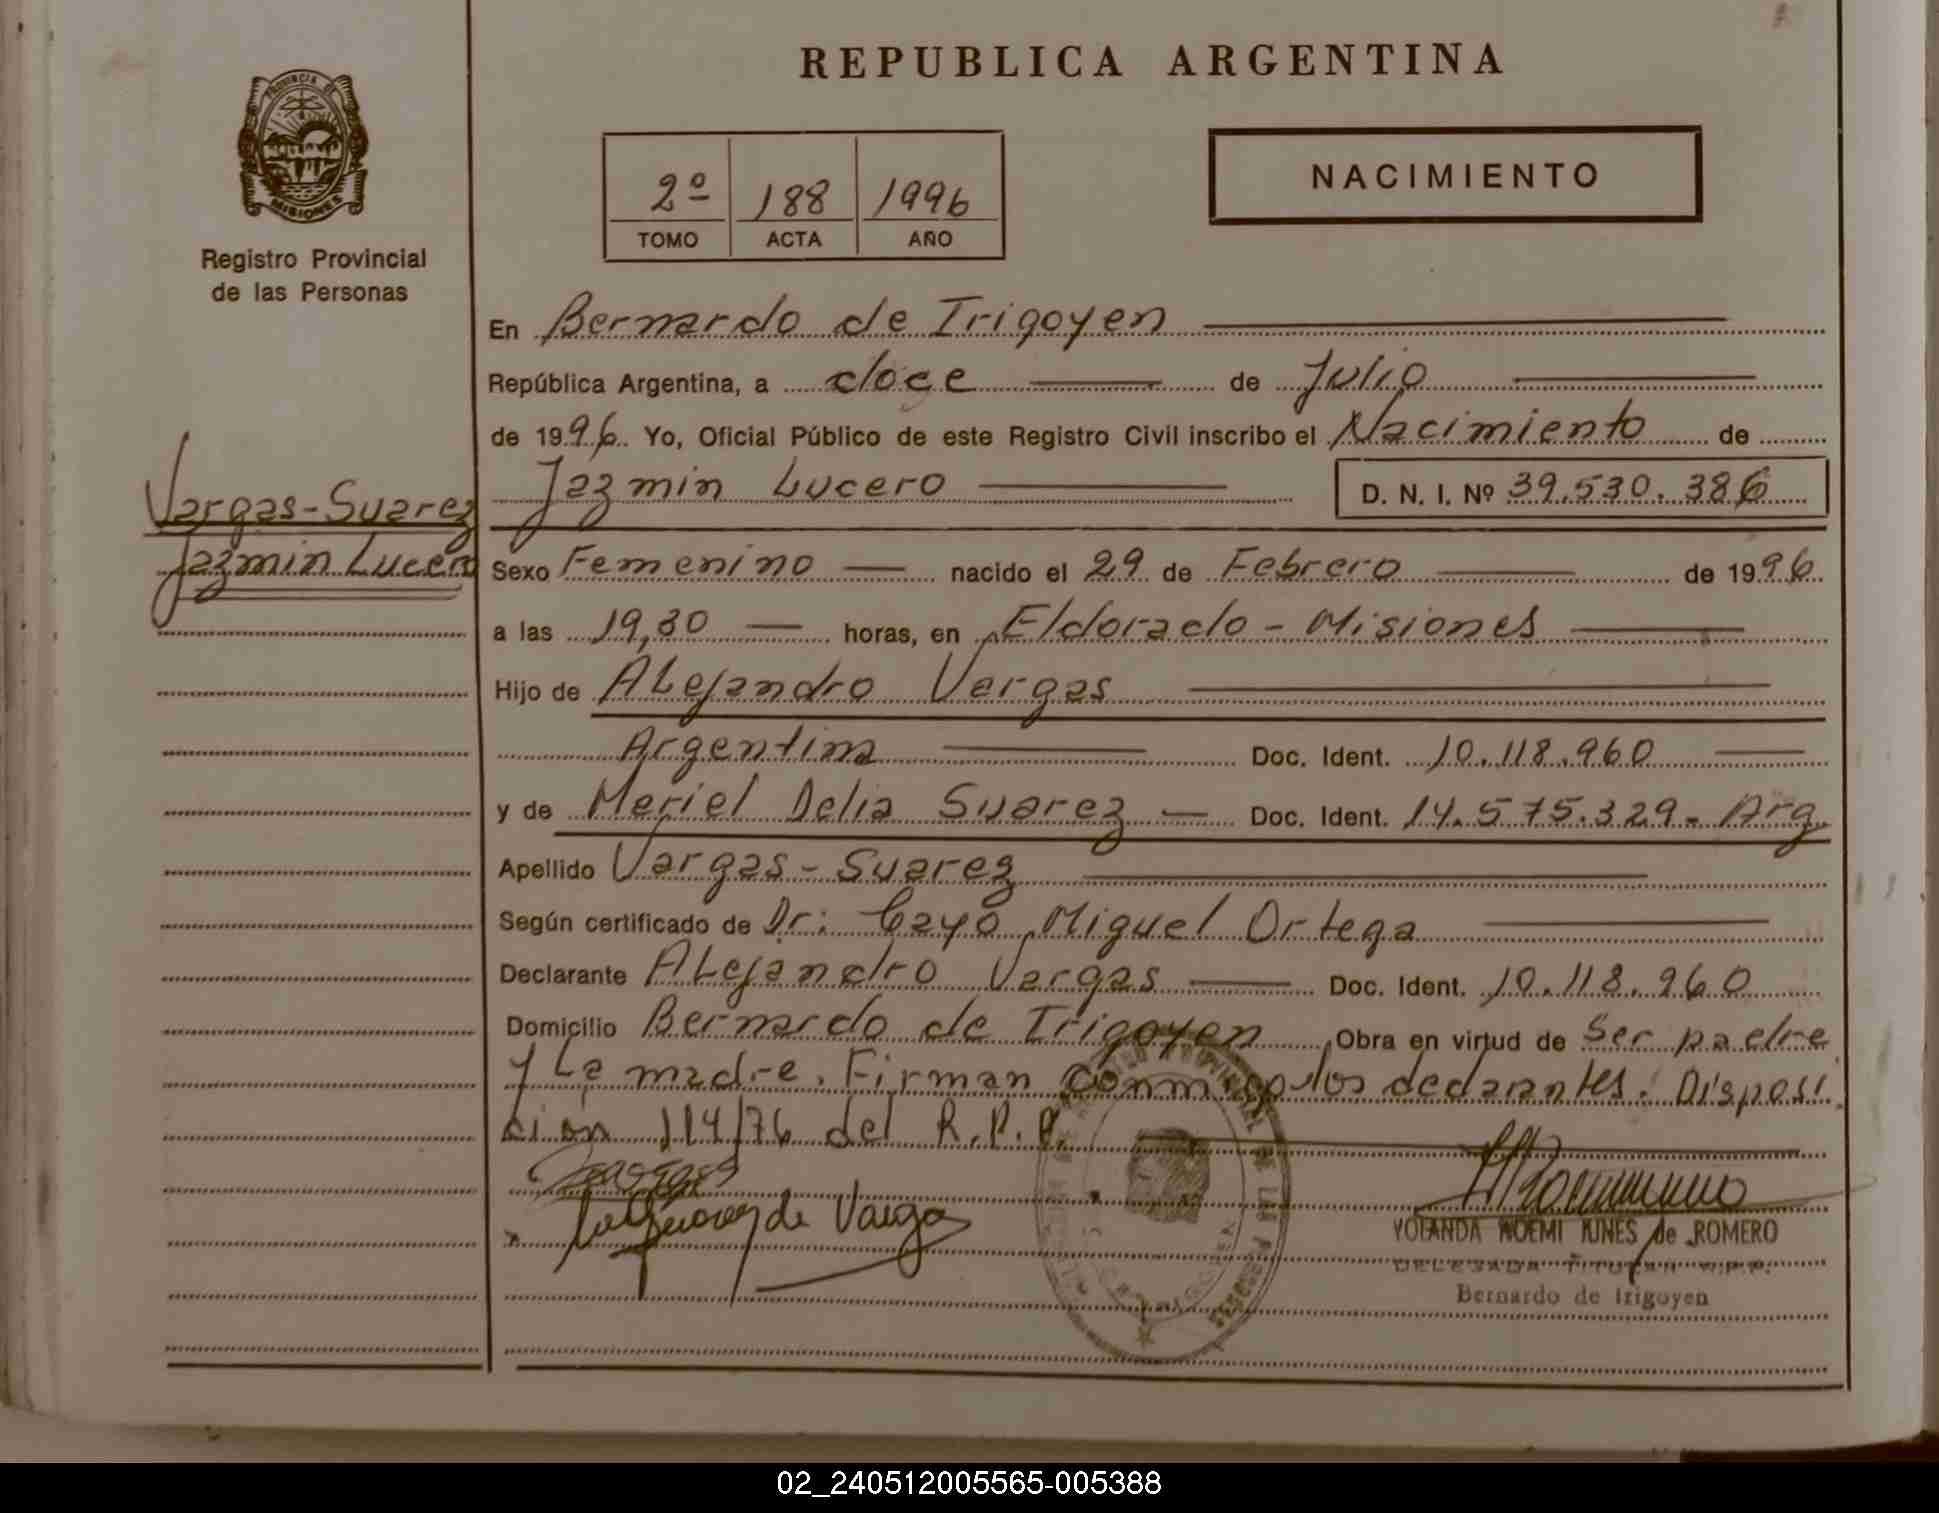 REPUBLICA ARGENTINA
PROVINCIA DE
MISIONES
Registro Provincial
de las Personas
2º 188 1996
TOMO ACTA AÑO
NACIMIENTO
En Bernardo de Irigoyen
República Argentina, a doce de Julio
de 1996. Yo, Oficial Público de este Registro Civil inscribo el Nacimiento de
Vargas-Suarez
Jazmin Lucero
Jazmin Lucero D. N. I. Nº 39.530.386
Sexo Femenino nacido el 29 de Febrero de 1996
a las 19,30 horas, en Eldorado - Misiones
Hijo de ALejandro Vargas
Argentina Doc. Ident. 10.118.960
y de Meriel Delia Suarez Doc. Ident. 14.575.329 - Arg.
Apellido Vargas - Suarez
Según certificado de Dr: Cayo Miguel Ortega
Declarante ALejandro Vargas Doc. Ident. 10.118.960
Domicilio Bernardo de Irigoyen Obra en virtud de Ser padre
y La madre. Firman conmigo los declarantes. Disposi
ción 114/76 del R.P.P.
de Vargas
YOLANDA NOEMI KUNES de ROMERO
DELEGADA TITULAR R.P.P.
Bernardo de Irigoyen
02_240512005565-005388